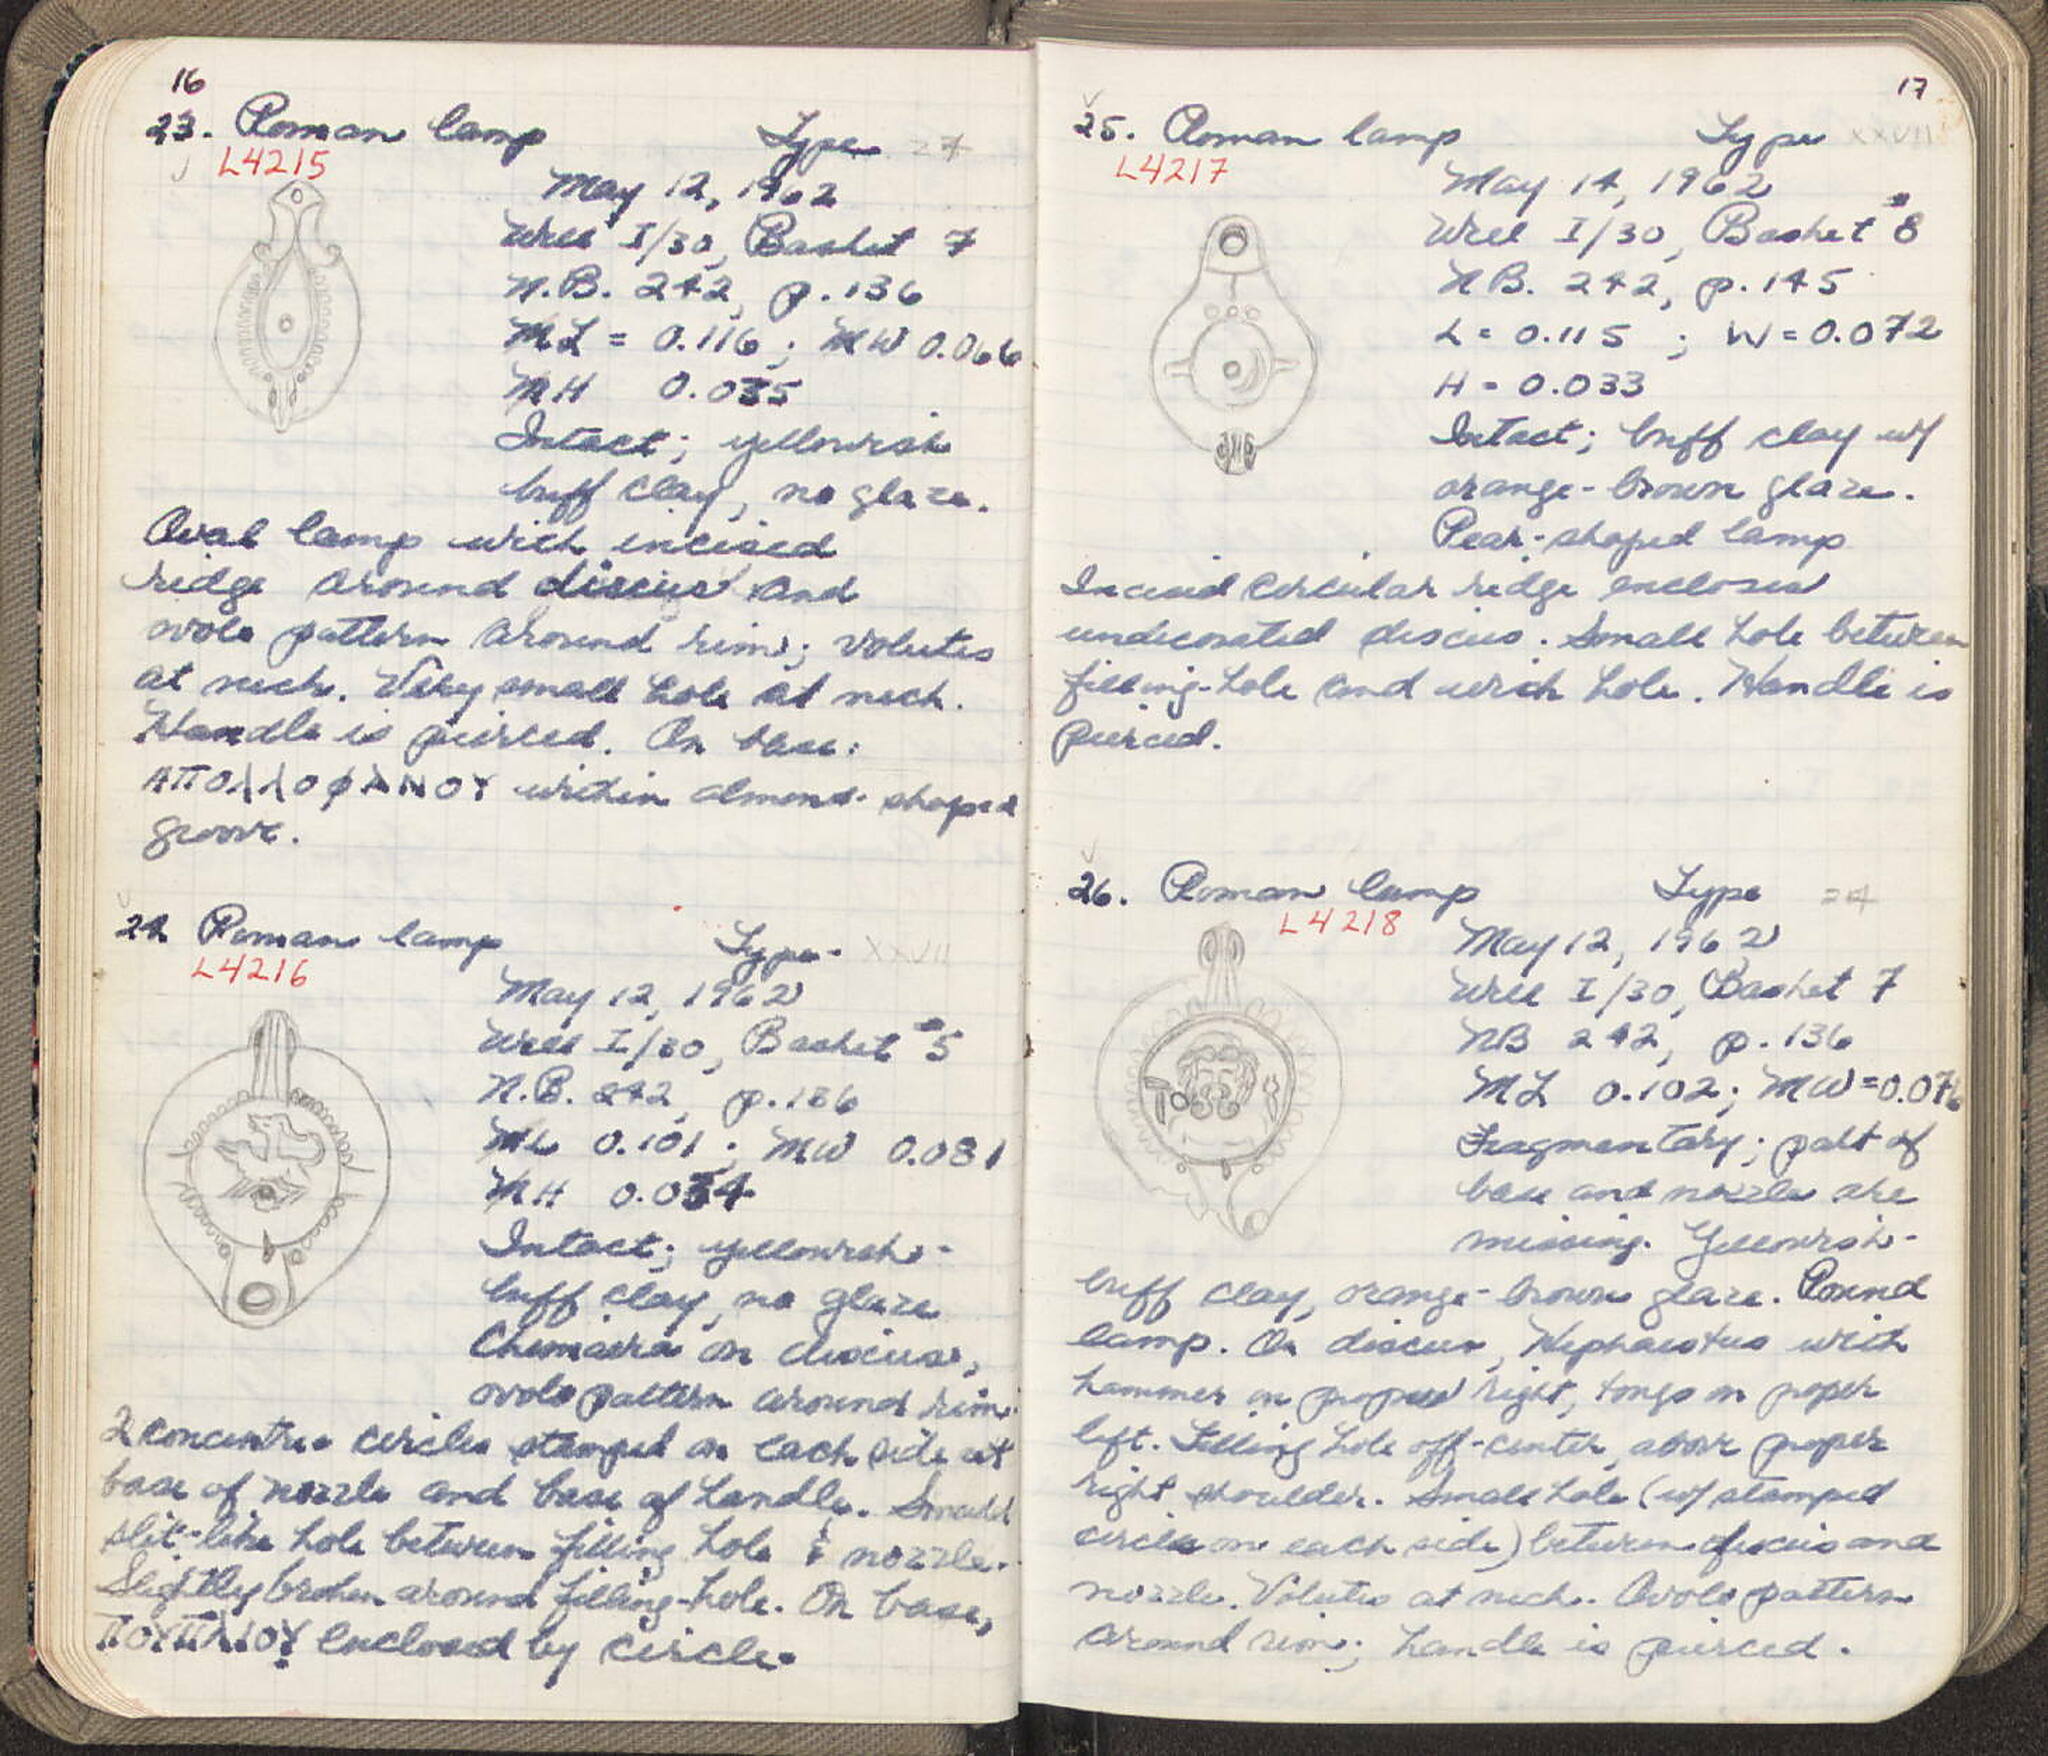 16
23. Roman lamp Type 27
L4215
May 12, 1962
Well I/30, Basket 7
N.B. 242, p. 136
ML = 0.116; MW 0.066
MH 0.035
Intact; yellowish
buff clay, no glaze.
Oval lamp with incised
ridge around discus and
ovolo pattern around rim; volutes
at neck. Very small hole at neck.
Handle is pierced. On base:
ΑΠΟΛΛΟΦΑΝΟΥ within almond-shaped
groove.
24. Roman lamp Type XXVII
L4216
May 12, 1962
Well I/30, Basket #5
N.B. 242, p. 136
ML 0.101; MW 0.081
MH 0.034
Intact; yellowish-
buff clay, no glaze
Chimaera on discus,
ovolo pattern around rim.
2 concentric circles stamped on each side at
base of nozzle and base of handle. Small
slit-like hole between filling hole & nozzle.
Slightly broken around filling-hole. On base,
ΠΟΥΠΛΙΟΥ enclosed by circle.
17
25. Roman lamp Type XXVII
L4217
May 14, 1962
Well I/30, Basket #8
NB. 242, p. 145
L = 0.115; W = 0.072
H = 0.033
Intact; buff clay w/
orange-brown glaze.
Pear-shaped lamp
Incised circular ridge encloses
undecorated discus. Small hole between
filling-hole and wick hole. Handle is
pierced.
26. Roman lamp Type 27
L4218
May 12, 1962
Well I/30, Basket 7
NB 242, p. 136
ML 0.102; MW = 0.076
Fragmentary; part of
base and nozzle are
missing. Yellowish-
buff clay, orange-brown glaze. Round
lamp. On discus, Hephaestus with
hammer on proper right, tongs on proper
left. Filling hole off-center, above proper
right shoulder. Small hole (w/ stamped
circle on each side) between discus and
nozzle. Volutes at neck. Ovolo pattern
around rim; handle is pierced.